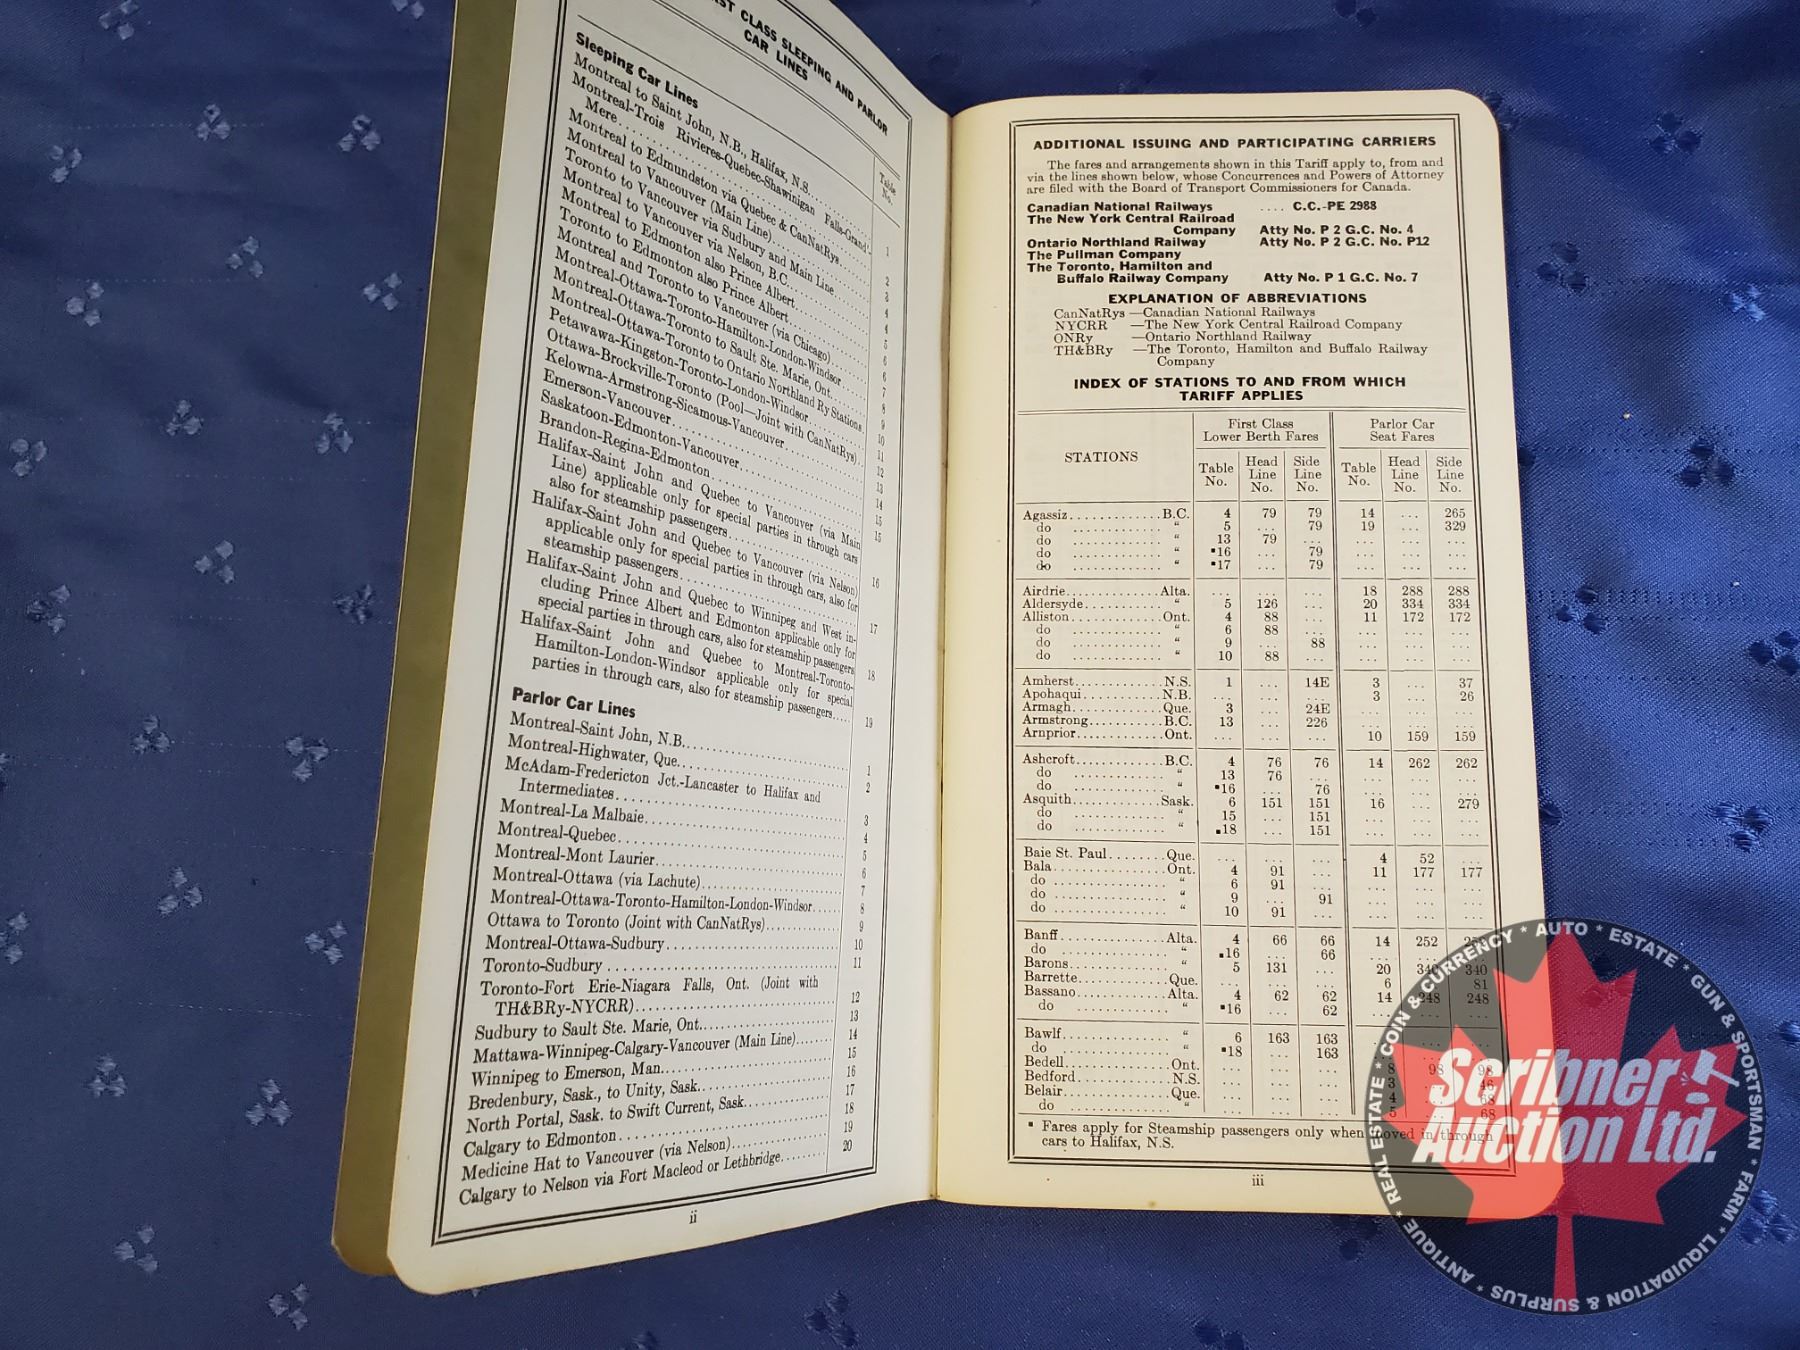 ST CLASS SLEEPING AND PARLOR
CAR LINES
Table
No.
Sleeping Car Lines
Montreal to Saint John, N.B., Halifax, N.S.
Montreal-Trois Rivieres-Quebec-Shawinigan Falls-Grand'
Mere 1
Montreal to Edmundston via Quebec & CanNatRys 2
Montreal to Vancouver (Main Line)
Toronto to Vancouver via Sudbury and Main Line
Montreal to Vancouver via Nelson, B.C.
Montreal to Edmonton also Prince Albert
Toronto to Edmonton also Prince Albert
Montreal and Toronto to Vancouver (via Chicago)
Montreal-Ottawa-Toronto-Hamilton-London-Windsor
Montreal-Ottawa-Toronto to Sault Ste. Marie, Ont.
Montreal-Ottawa-Toronto to Ontario Northland Ry Stations
Petawawa-Kingston-Toronto-London-Windsor
Ottawa-Brockville-Toronto (Pool—Joint with CanNatRys)
Kelowna-Armstrong-Sicamous-Vancouver
Emerson-Vancouver
Saskatoon-Edmonton-Vancouver
Brandon-Regina-Edmonton
Halifax-Saint John and Quebec to Vancouver (via Main
Line) applicable only for special parties in through cars
also for steamship passengers 16
Halifax-Saint John and Quebec to Vancouver (via Nelson)
applicable only for special parties in through cars, also for
steamship passengers 17
Halifax-Saint John and Quebec to Winnipeg and West in-
cluding Prince Albert and Edmonton applicable only for
special parties in through cars, also for steamship passengers 18
Halifax-Saint John and Quebec to Montreal-Toronto-
Hamilton-London-Windsor applicable only for special
parties in through cars, also for steamship passengers 19
Parlor Car Lines
Montreal-Saint John, N.B. 1
Montreal-Highwater, Que. 2
McAdam-Fredericton Jct.-Lancaster to Halifax and
Intermediates 3
Montreal-La Malbaie 4
Montreal-Quebec 5
Montreal-Mont Laurier 6
Montreal-Ottawa (via Lachute) 7
Montreal-Ottawa-Toronto-Hamilton-London-Windsor 8
Ottawa to Toronto (Joint with CanNatRys) 9
Montreal-Ottawa-Sudbury 10
Toronto-Sudbury 11
Toronto-Fort Erie-Niagara Falls, Ont. (Joint with
TH&BRy-NYCRR) 12
Sudbury to Sault Ste. Marie, Ont. 13
Mattawa-Winnipeg-Calgary-Vancouver (Main Line) 14
Winnipeg to Emerson, Man. 15
Bredenbury, Sask., to Unity, Sask. 16
North Portal, Sask. to Swift Current, Sask. 17
Calgary to Edmonton 18
Medicine Hat to Vancouver (via Nelson) 19
Calgary to Nelson via Fort Macleod or Lethbridge 20
ii
ADDITIONAL ISSUING AND PARTICIPATING CARRIERS
The fares and arrangements shown in this Tariff apply to, from and
via the lines shown below, whose Concurrences and Powers of Attorney
are filed with the Board of Transport Commissioners for Canada.
Canadian National Railways .... C.C.-PE 2988
The New York Central Railroad
Company Atty No. P 2 G.C. No. 4
Ontario Northland Railway Atty No. P 2 G.C. No. P12
The Pullman Company
The Toronto, Hamilton and
Buffalo Railway Company Atty No. P 1 G.C. No. 7
EXPLANATION OF ABBREVIATIONS
CanNatRys —Canadian National Railways
NYCRR —The New York Central Railroad Company
ONRy —Ontario Northland Railway
TH&BRy —The Toronto, Hamilton and Buffalo Railway
Company
INDEX OF STATIONS TO AND FROM WHICH
TARIFF APPLIES
STATIONS
First Class Parlor Car
Lower Berth Fares Seat Fares
Table No. Head Line No. Side Line No. Table No. Head Line No. Side Line No.
Agassiz B.C. 4 79 79 14 ... 265
do " 5 ... 79 19 ... 329
do " 13 79 ... ... ... ...
do " ▪16 ... 79 ... ... ...
do " ▪17 ... 79 ... ... ...
Airdrie Alta. ... ... ... 18 288 288
Aldersyde " 5 126 ... 20 334 334
Alliston Ont. 4 88 ... 11 172 172
do " 6 88 ... ... ... ...
do " 9 ... 88 ... ... ...
do " 10 88 ... ... ... ...
Amherst N.S. 1 ... 14E 3 ... 37
Apohaqui N.B. ... ... ... 3 ... 26
Armagh Que. 3 ... 24E ... ... ...
Armstrong B.C. 13 ... 226 ... ... ...
Arnprior Ont. ... ... ... 10 159 159
Ashcroft B.C. 4 76 76 14 262 262
do " 13 76 ... ... ... ...
do " ▪16 ... 76 ... ... ...
Asquith Sask. 6 151 151 16 ... 279
do " 15 ... 151 ... ... ...
do " ▪18 ... 151 ... ... ...
Baie St. Paul Que. ... ... ... 4 52 ...
Bala Ont. 4 91 ... 11 177 177
do " 6 91 ... ... ... ...
do " 9 ... 91 ... ... ...
do " 10 91 ... ... ... ...
Banff Alta. 4 66 66 14 252
do " ▪16 ... 66 ... ... ...
Barons " 5 131 ... 20 340 340
Barrette Que. ... ... ... 6 ... 81
Bassano Alta. 4 62 62 14 248 248
do " ▪16 ... 62 ... ... ...
Bawlf " 6 163 163
do " ▪18 ... 163
Bedell Ont. ... ... ... 8 98 98
Bedford N.S. ... ... ... 3 46
Belair Que. ... ... ... 4 68
do " ... ... ... 5 68
▪ Fares apply for Steamship passengers only when moved in through
cars to Halifax, N.S.
iii
Scribner
Auction Ltd.
* AUTO * ESTATE * GUN & SPORTSMAN * FARM * LIQUIDATION & SURPLUS * ANTIQUE * REAL ESTATE * COIN & CURRENCY